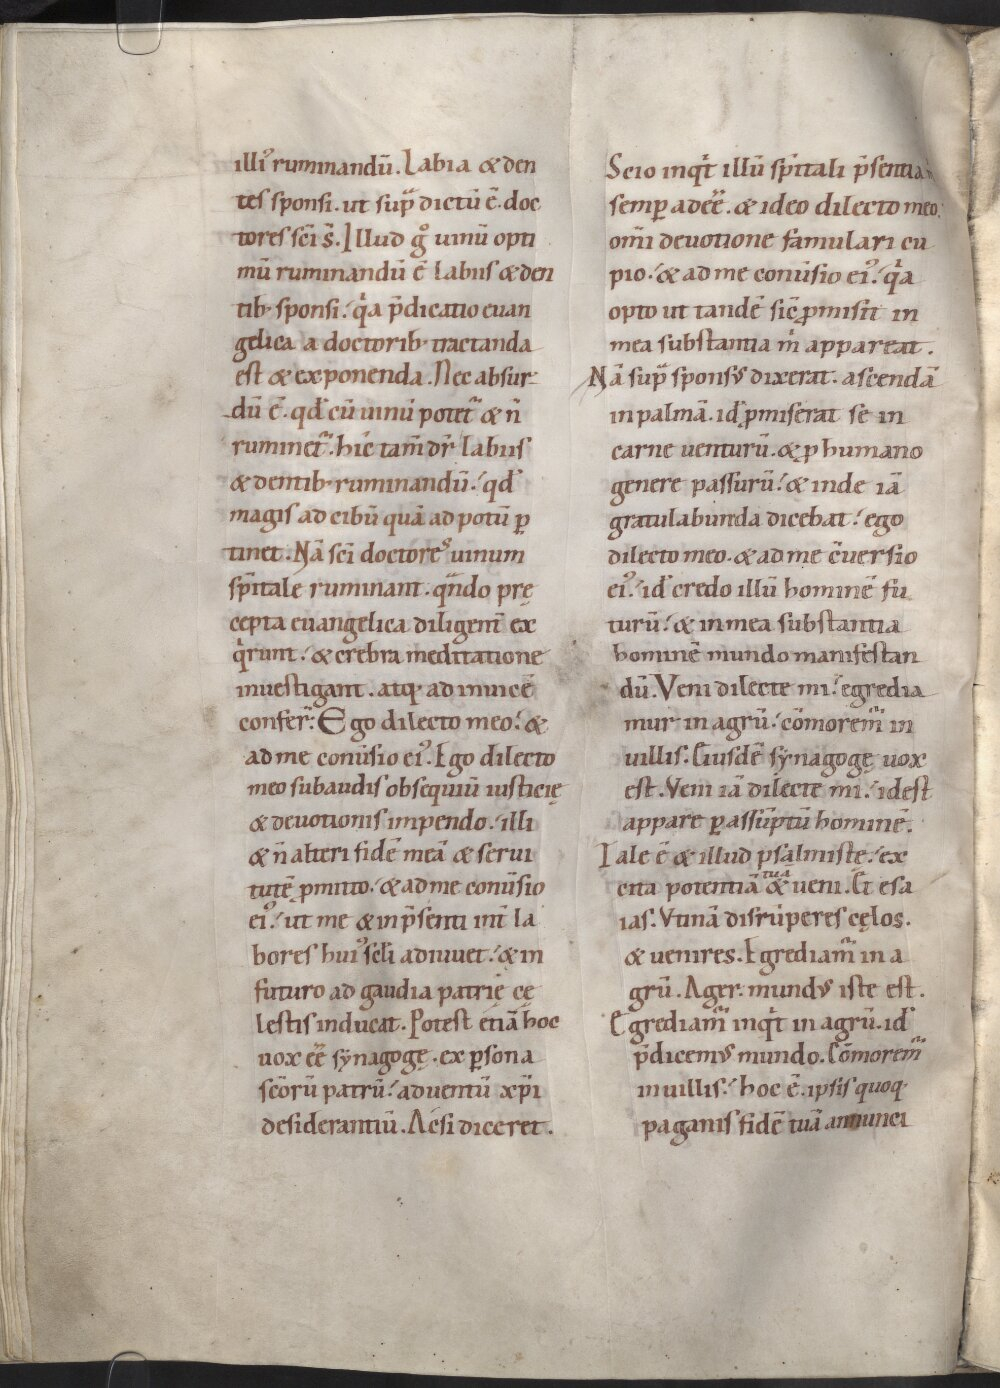 illi᾽ ruminandū. Labia & den
tes sponsi. ut sup̄ dictū ē. doc
tores sc̄i s̄. Illud g̊ uinū opti
mū ruminandū ē labiis & den
tib· sponsi. q̇a p̄dicatio euan
gelica a doctorib· tractanda
est & exponenda. Nec absur
dū ē. qd̄ cū uinū potet᷑ & n̄
ruminet᷑. hic̄ tam̄ dr̄ labiis
& dentib· ruminandū. qd̄
magis ad cibū quā ad potū ꝑ
tinet. Nā sc̄i doctores uinum
sp̄itale ruminant. qn̄do pre̜
cepta euangelica diligent̄ ex
q̇runt. & crebra meditatione
inuestigant. atq; ad inuicē
confer̄. Ego dilecto meo. &
ad me conūsio ei᾽. Ego dilecto
meo subaudis obsequiū iusticie̜
& deuotionis impendo. illi
& n̄ alteri fidē meā & serui
tutē ꝓmitto. & ad me conūsio
ei᾽. ut me & in p̄senti int̄ la
bores hui᾽ sc̄li adiuuet. & in
futuro ad gaudia patrie̜ ce̜
lestis inducat. Potest etiā hoc
uox ee̅ synagoge̜. ex ꝑsona
sc̄orū patrū. aduentū xp̄i
desiderantiū. Ac si diceret.
Scio inq̇t illū sp̄itali p̄sentia m̄
semꝑ adee̅. & ideo dilecto meo.
om̄i deuotione famulari cu
pio. & ad me conūsio ei᾽. q̇a
opto ut tandē sic̄ ꝓmisit̄ in
mea substantia ṁ appareat.
Nā sup̄ sponsus dixerat. ascendā
in palmā. id ꝓmiserat se in
carne venturū. & ꝓ humano
genere passurū. & inde iā
gratulabunda dicebat. ego
dilecto meo. & ad me c̄uersio
ei᾽. id credo illū hominē fu
turū. & in mea substantia
hominē mundo manifestan
dū. Veni dilecte mi. egredia
mur in agrū. cōmorem᷑ in
uillis. Eiusdē synagoge̜ uox
est. Veni iā dilecte mi. idest
appare ꝑ assūptū hominē.
Tale ē & illud psalmiste̜. ex
cita potentiā tuā & ueni. Et esa
ias. Vtinā disrūperes ce̜los.
& uenires. Egrediam᷑ in a
grū. Ager mundus iste est.
Egrediam᷑ inq̇t in agrū. id
p̄dicemus mundo. Cōmorem᷑
in uillis. hoc ē. ipsis quoq;
paganis fidē tuā annunci